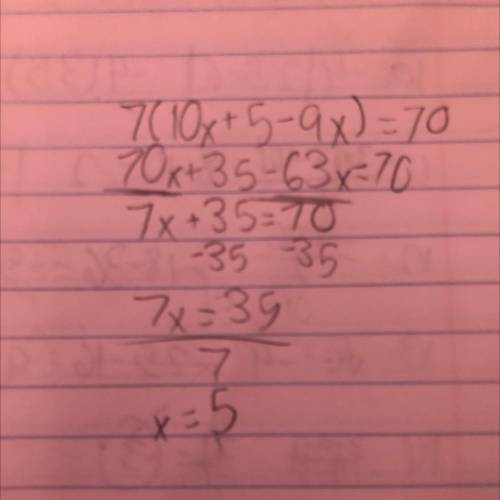 7(10x+5-9x)=70
70x+35-63x=70
7x+35=70
-35 -35
7x=35
7
x=5